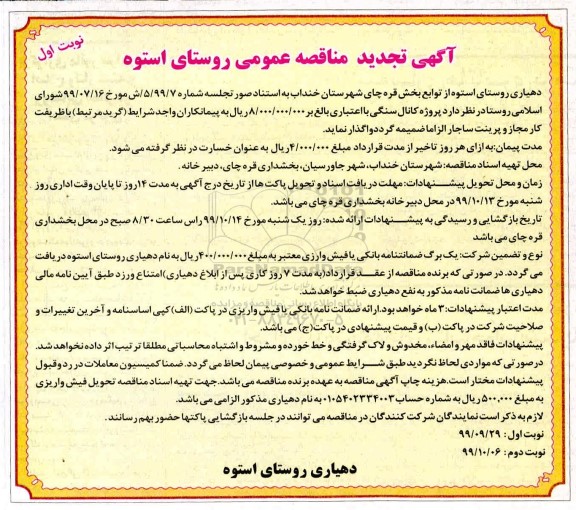 نوبت اول
آگهی تجدید مناقصه عمومی روستای استوه
دهیاری روستای استوه از توابع بخش قره چای شهرستان خنداب به استناد صورتجلسه شماره ۵/۹۹/۷/ش مورخ ۹۹/۰۷/۱۶ شورای
اسلامی روستا در نظر دارد پروژه کانال سنگی با اعتباری بالغ بر ۸/۰۰۰/۰۰۰/۰۰۰ ریال به پیمانکاران واجد شرایط (گرید مرتبط) با ظریفت
کار مجاز و پرینت ساجار الزاما ضمیمه گردد واگذار نماید.
مدت پیمان: به ازای هر روز تاخیر از مدت قرارداد مبلغ ۴/۰۰۰/۰۰۰ ریال به عنوان خسارت در نظر گرفته می شود.
محل تهیه اسناد مناقصه: شهرستان خنداب، شهر جاورسیان، بخشداری قره چای، دبیر خانه.
زمان و محل تحویل پیشنهادات: مهلت دریافت اسناد و تحویل پاکت ها از تاریخ درج آگهی به مدت ۱۴ روز تا پایان وقت اداری روز
شنبه مورخ ۹۹/۱۰/۱۳ در محل دبیر خانه بخشداری قره چای می باشد.
تاریخ بازگشایی و رسیدگی به پیشنهادات ارائه شده: روز یک شنبه مورخ ۹۹/۱۰/۱۴ راس ساعت ۸/۳۰ صبح در محل بخشداری
قره چای می باشد
نوع و تضمین شرکت: یک برگ ضمانتنامه بانکی یا فیش وارزی معتبر به مبلغ ۴۰۰/۰۰۰/۰۰۰ ریال به نام دهیاری روستای استوه دریافت
می گردد. در صورتی که برنده مناقصه از عقد قرارداد (به مدت ۷ روز کاری پس از ابلاغ دهیاری) امتناع ورزد طبق آیین نامه مالی
دهیاری ها ضمانت نامه مذکور به نفع دهیاری ضبط خواهد شد.
مدت اعتبار پیشنهادات: ۳ ماه خواهد بود. ارائه ضمانت نامه بانکی یا فیش واریزی در پاکت (الف) کپی اساسنامه و آخرین تغییرات و
صلاحیت شرکت در پاکت (ب) و قیمت پیشنهادی در پاکت (ج) می باشد.
پیشنهادات فاقد مهر و امضاء، مخدوش و لاک گرفتگی و خط خورده و مشروط و اشتباه محاسباتی مطلقا ترتیب اثر داده نخواهد شد.
در صورتی که مواردی لحاظ نگردید طبق شرایط عمومی و خصوصی پیمان لحاظ می گردد. ضمنا کمیسیون معاملات در رد و قبول
پیشنهادات مختار است. هزینه چاپ آگهی مناقصه به عهده برنده مناقصه می باشد. جهت تهیه اسناد مناقصه تحویل فیش واریزی
به مبلغ ۵۰۰,۰۰۰ ریال به شماره حساب ۰۱۰۵۴۰۲۳۳۴۰۰۳ به نام دهیاری مذکور الزامی می باشد.
لازم به ذکر است نمایندگان شرکت کنندگان در مناقصه می توانند در جلسه بازگشایی پاکتها حضور بهم رسانند.
نوبت اول: ۹۹/۰۹/۲۹
نوبت دوم: ۹۹/۱۰/۰۶
دهیاری روستای استوه